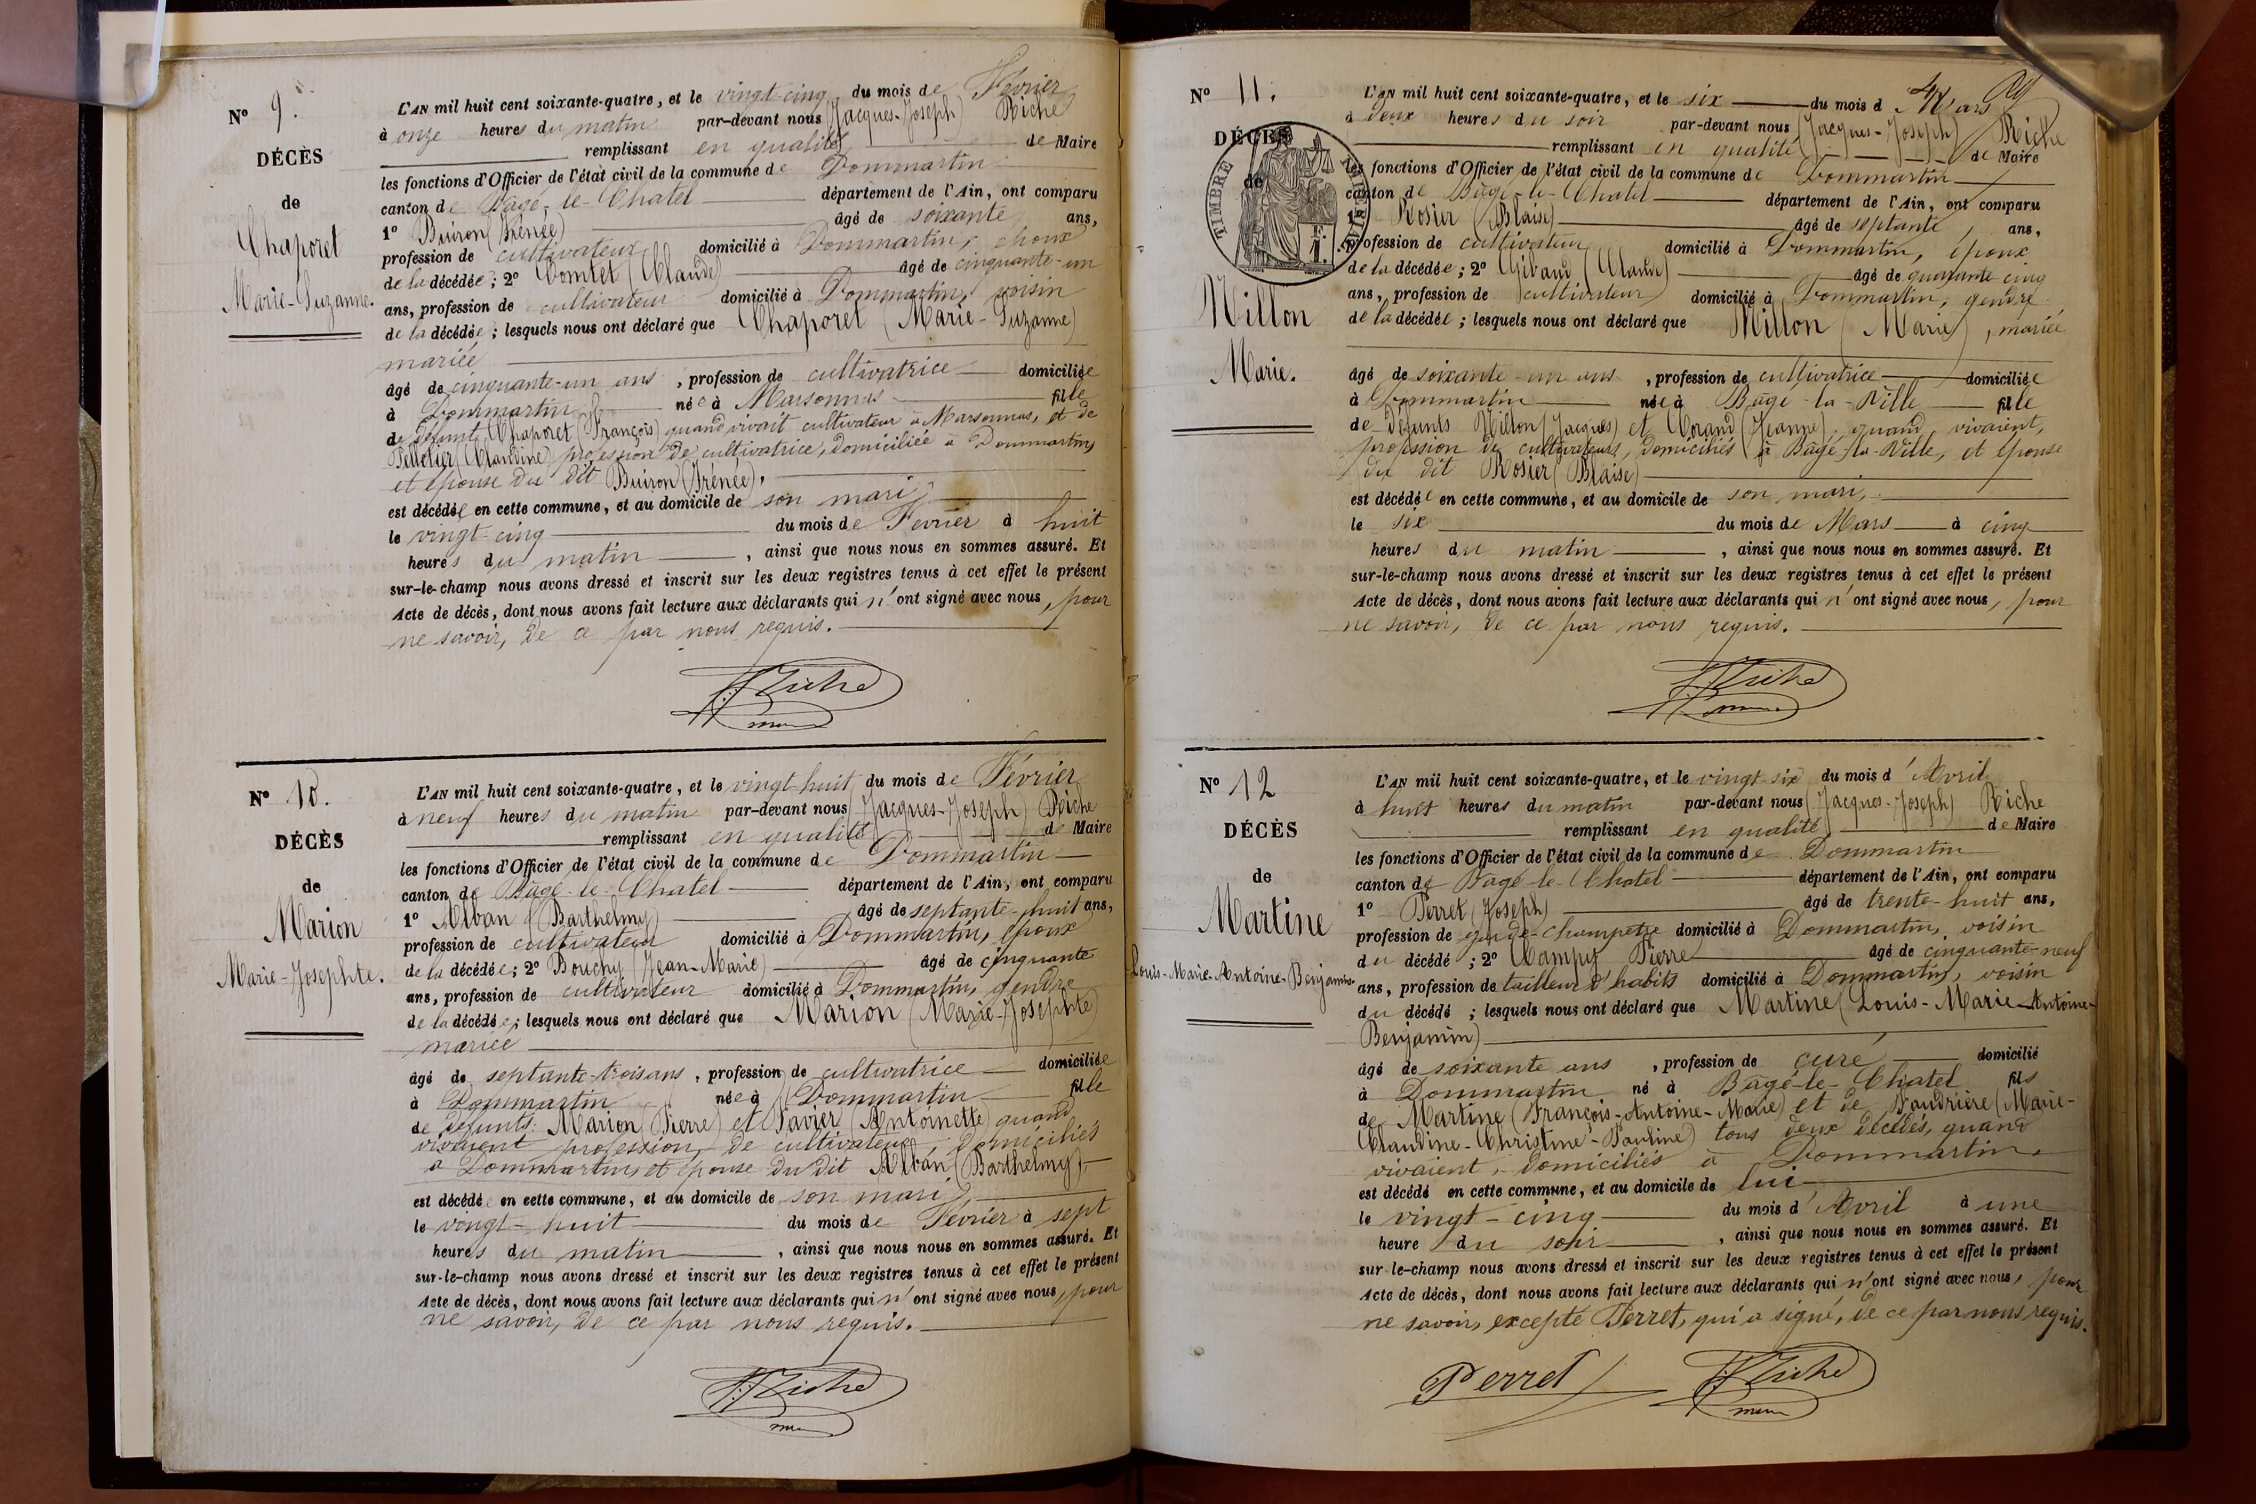 N° 9.
DÉCÈS
de
Chaporet
Marie-Suzanne.
L'AN mil huit cent soixante-quatre, et le vingt-cinq du mois de Février
à onze heures du matin par-devant nous (Jacques-Joseph) Riche
remplissant en qualité de Maire
les fonctions d'Officier de l'état civil de la commune de Dommartin
canton de Bâgé-le-Chatel département de l'Ain, ont comparu
1° Buiron (Irénée) âgé de soixante ans,
profession de cultivateur domicilié à Dommartin, époux
de la décédée; 2° Comtet (Claude) âgé de cinquante-un
ans, profession de cultivateur domicilié à Dommartin, voisin
de la décédée; lesquels nous ont déclaré que Chaporet (Marie-Suzanne)
mariée
âgé de cinquante-un ans, profession de cultivatrice domiciliée
à Dommartin née à Marsonnas fille
de défunt Chaporet (François) quand vivait cultivateur à Marsonnas, et de
Pelletier (Claudine) profession de cultivatrice, domiciliée à Dommartin,
et épouse du dit Buiron (Irénée),
est décédée en cette commune, et au domicile de son mari,
le vingt-cinq du mois de Février à huit
heures du matin, ainsi que nous nous en sommes assuré. Et
sur-le-champ nous avons dressé et inscrit sur les deux registres tenus à cet effet le présent
Acte de décès, dont nous avons fait lecture aux déclarants qui n'ont signé avec nous, pour
ne savoir, de ce par nous requis.
J. J. Riche
N° 10.
DÉCÈS
de
Marion
Marie-Josephte.
L'AN mil huit cent soixante-quatre, et le vingt-huit du mois de Février
à neuf heures du matin par-devant nous (Jacques-Joseph) Riche
remplissant en qualité de Maire
les fonctions d'Officier de l'état civil de la commune de Dommartin
canton de Bâgé-le-Chatel département de l'Ain, ont comparu
1° Alban (Barthelmy) âgé de septante-huit ans,
profession de cultivateur domicilié à Dommartin, époux
de la décédée; 2° Bouchy (Jean-Marie) âgé de cinquante
ans, profession de cultivateur domicilié à Dommartin, gendre
de la décédée; lesquels nous ont déclaré que Marion (Marie-Josephte)
mariée
âgé de septante-trois ans, profession de cultivatrice domiciliée
à Dommartin née à Dommartin fille
de défunts: Marion (Pierre) et Pavier (Antoinette) quand
vivaient profession de cultivateurs, domiciliés
à Dommartin, et épouse du dit Alban (Barthelmy)
est décédée en cette commune, et au domicile de son mari,
le vingt-huit du mois de Février à sept
heures du matin, ainsi que nous nous en sommes assuré. Et
sur-le-champ nous avons dressé et inscrit sur les deux registres tenus à cet effet le présent
Acte de décès, dont nous avons fait lecture aux déclarants qui n'ont signé avec nous, pour
ne savoir, de ce par nous requis.
J. J. Riche
N° 11.
DÉCÈS
de
TIMBRE IMPERIAL
Millon
Marie.
L'AN mil huit cent soixante-quatre, et le six du mois de Mars
à deux heures du soir par-devant nous (Jacques-Joseph) Riche
remplissant en qualité de Maire
les fonctions d'Officier de l'état civil de la commune de Dommartin
canton de Bâgé-le-Chatel département de l'Ain, ont comparu
1° Rosier (Blaise) âgé de septante, ans,
profession de cultivateur domicilié à Dommartin, époux
de la décédée; 2° Giband (Claude) âgé de quarante-cinq
ans, profession de cultivateur domicilié à Dommartin, gendre
de la décédée; lesquels nous ont déclaré que Millon (Marie), mariée
âgé de soixante-un ans, profession de cultivatrice domiciliée
à Dommartin née à Bâgé-la-Ville fille
de défunts Millon (Jacques) et Morand (Jeanne), quand vivaient,
profession de cultivateurs, domiciliés à Bâgé-la-Ville, et épouse
du dit Rosier (Blaise)
est décédée en cette commune, et au domicile de son mari,
le six du mois de Mars à cinq
heures du matin, ainsi que nous nous en sommes assuré. Et
sur-le-champ nous avons dressé et inscrit sur les deux registres tenus à cet effet le présent
Acte de décès, dont nous avons fait lecture aux déclarants qui n'ont signé avec nous, pour
ne savoir, de ce par nous requis.
J. J. Riche
N° 12
DÉCÈS
de
Martine
Louis-Marie-Antoine-Benjamin.
L'AN mil huit cent soixante-quatre, et le vingt-six du mois d'Avril
à huit heures du matin par-devant nous (Jacques-Joseph) Riche
remplissant en qualité de Maire
les fonctions d'Officier de l'état civil de la commune de Dommartin
canton de Bâgé-le-Chatel département de l'Ain, ont comparu
1° Perret (Joseph) âgé de trente-huit ans,
profession de garde-champetre domicilié à Dommartin, voisin
du décédé; 2° Campy Pierre âgé de cinquante-neuf
ans, profession de tailleur d'habits domicilié à Dommartin, voisin
du décédé; lesquels nous ont déclaré que Martine (Louis-Marie-Antoine-
Benjamin)
âgé de soixante ans, profession de curé domicilié
à Dommartin né à Bâgé-le-Chatel fils
de Martine (François-Antoine-Marie) et de Faudrière (Marie-
Claudine-Christine-Pauline) tous deux décédés, quand
vivaient, domiciliés à Dommartin.
est décédé en cette commune, et au domicile de lui
le vingt-cinq du mois d'Avril à une
heure du soir, ainsi que nous nous en sommes assuré. Et
sur-le-champ nous avons dressé et inscrit sur les deux registres tenus à cet effet le présent
Acte de décès, dont nous avons fait lecture aux déclarants qui n'ont signé avec nous, pour
ne savoir, excepté Perret, qui a signé, de ce par nous requis.
Perret J. J. Riche